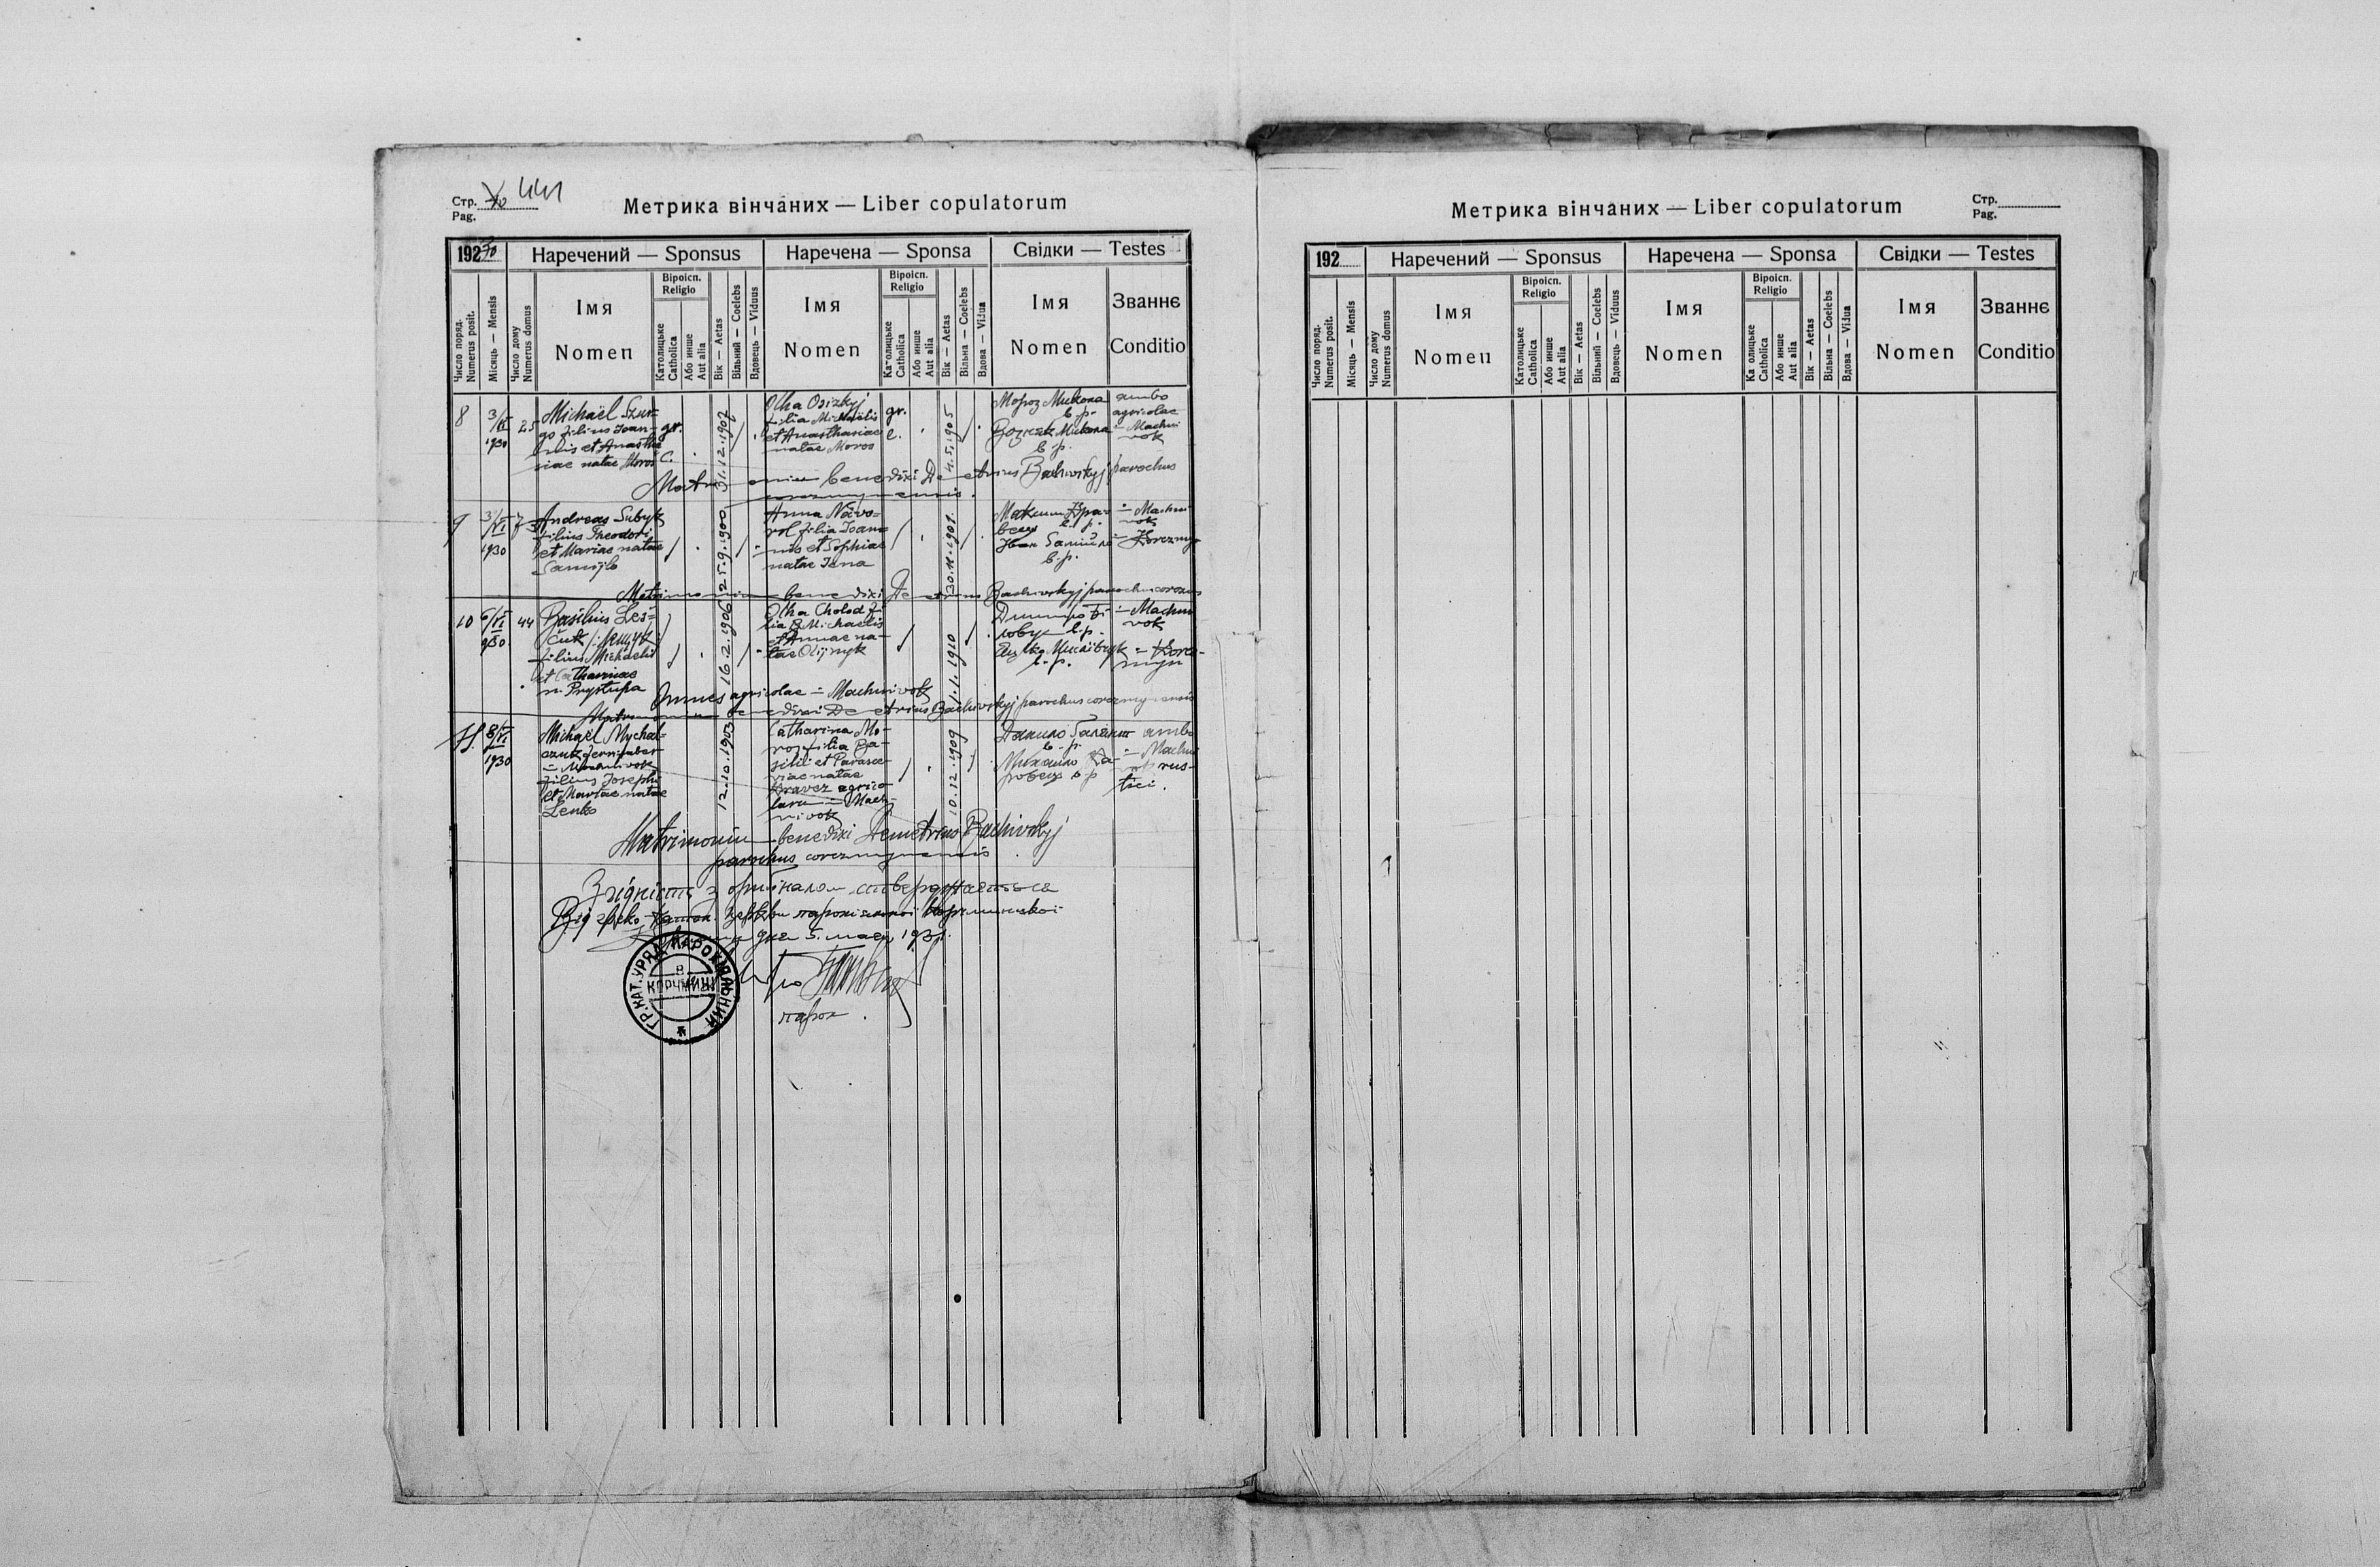 Стр. 441
Pag.
Метрика вінчаних — Liber copulatorum
192
Наречений — Sponsus
Наречена — Sponsa
Свідки — Testes
Число поряд.
Numerus posit.
Місяць — Mensis
Число дому
Numerus domus
Імя
Nomen
Віроісп.
Religio
Католицьке
Catholica
Або инше
Aut alia
Вік — Aetas
Вільний — Coelebs
Вдовець — Viduus
Імя
Nomen
Віроісп.
Religio
Католицьке
Catholica
Або инше
Aut alia
Вік — Aetas
Вільна — Coelebs
Вдова — Vidua
Імя
Nomen
Званнє
Conditio
8
3/VI
1930
25
Michaël Szur-
go filius Joan-
nis et Anastha-
siae natae Moros
gr.
c.
31.12.1907
Olha Osizkyj
filia Michaëlis
et Anasthasiae
natae Moros
gr.
c.
4.5.1905
Мороз Микола
б.р.
Возняк Микола
б.р.
ambo
agricolae
- Machni
vok
Matrimonium benedixi Demetrius Bachivskyj parochus
corczmynensis.
9
3/VI
1930
Andreas Subyk
filius Theodori
et Mariae natae
Samijlo
25.9.1900
Anna Navo-
rol filia Joan-
nis et Sophiae
natae Jana
30.11.1901
Максим Кра-
вець б.р.
Іван Самійло
б.р.
- Machni
vok
- Korczmyn
Matrimonium benedixi Demetrius Bachivskyj parochus corczm
10
6/VI
930
44
Basilius Les-
čuk
filius Michaelis
et Catharinae
n. Prystupa
16.2.1906
Olha Cholod fi-
lia Michaelis
et Annae na-
tae Olijnyk
1.1.1910
б.р.
б.р.
- Machni
vok
- Korcz-
myn
Omnes agricolae - Machnivok
Matrimonium benedixi Demetrius Bachivskyj parochus corczmynensis
11.
8/VI
1930
Michaël Mychal-
czuk
- Machnivok
filius Josephi
et Mariae natae
Lenko
12.10.1903
Catharina Mo-
roz filia Ba-
silii et Parasce-
viae natae
Kravez agrico-
larum - Mach-
nivok
10.12.1909
Данило Галянт
б.р.
Михайло
б.р.
ambo
- Machni
vok rus-
tici.
Matrimonium benedixi Demetrius Bachivskyj
parochus corczmynensis
Згідність з оригіналом стверджається
Від греко-катол. церкви парохіяльної Корчминської
дня 5. мая 193
ГР.КАТ.УРЯД ПАРОХІЯЛЬНИЙ
В
КОРЧМИНІ
парох.
Метрика вінчаних — Liber copulatorum
Стр.
Pag.
192
Наречений — Sponsus
Наречена — Sponsa
Свідки — Testes
Число поряд.
Numerus posit.
Місяць — Mensis
Число дому
Numerus domus
Імя
Nomen
Віроісп.
Religio
Католицьке
Catholica
Або инше
Aut alia
Вік — Aetas
Вільний — Coelebs
Вдовець — Viduus
Імя
Nomen
Віроісп.
Religio
Ка олицьке
Catholica
Або инше
Aut alia
Вік — Aetas
Вільна — Coelebs
Вдова — Vidua
Імя
Nomen
Званнє
Conditio